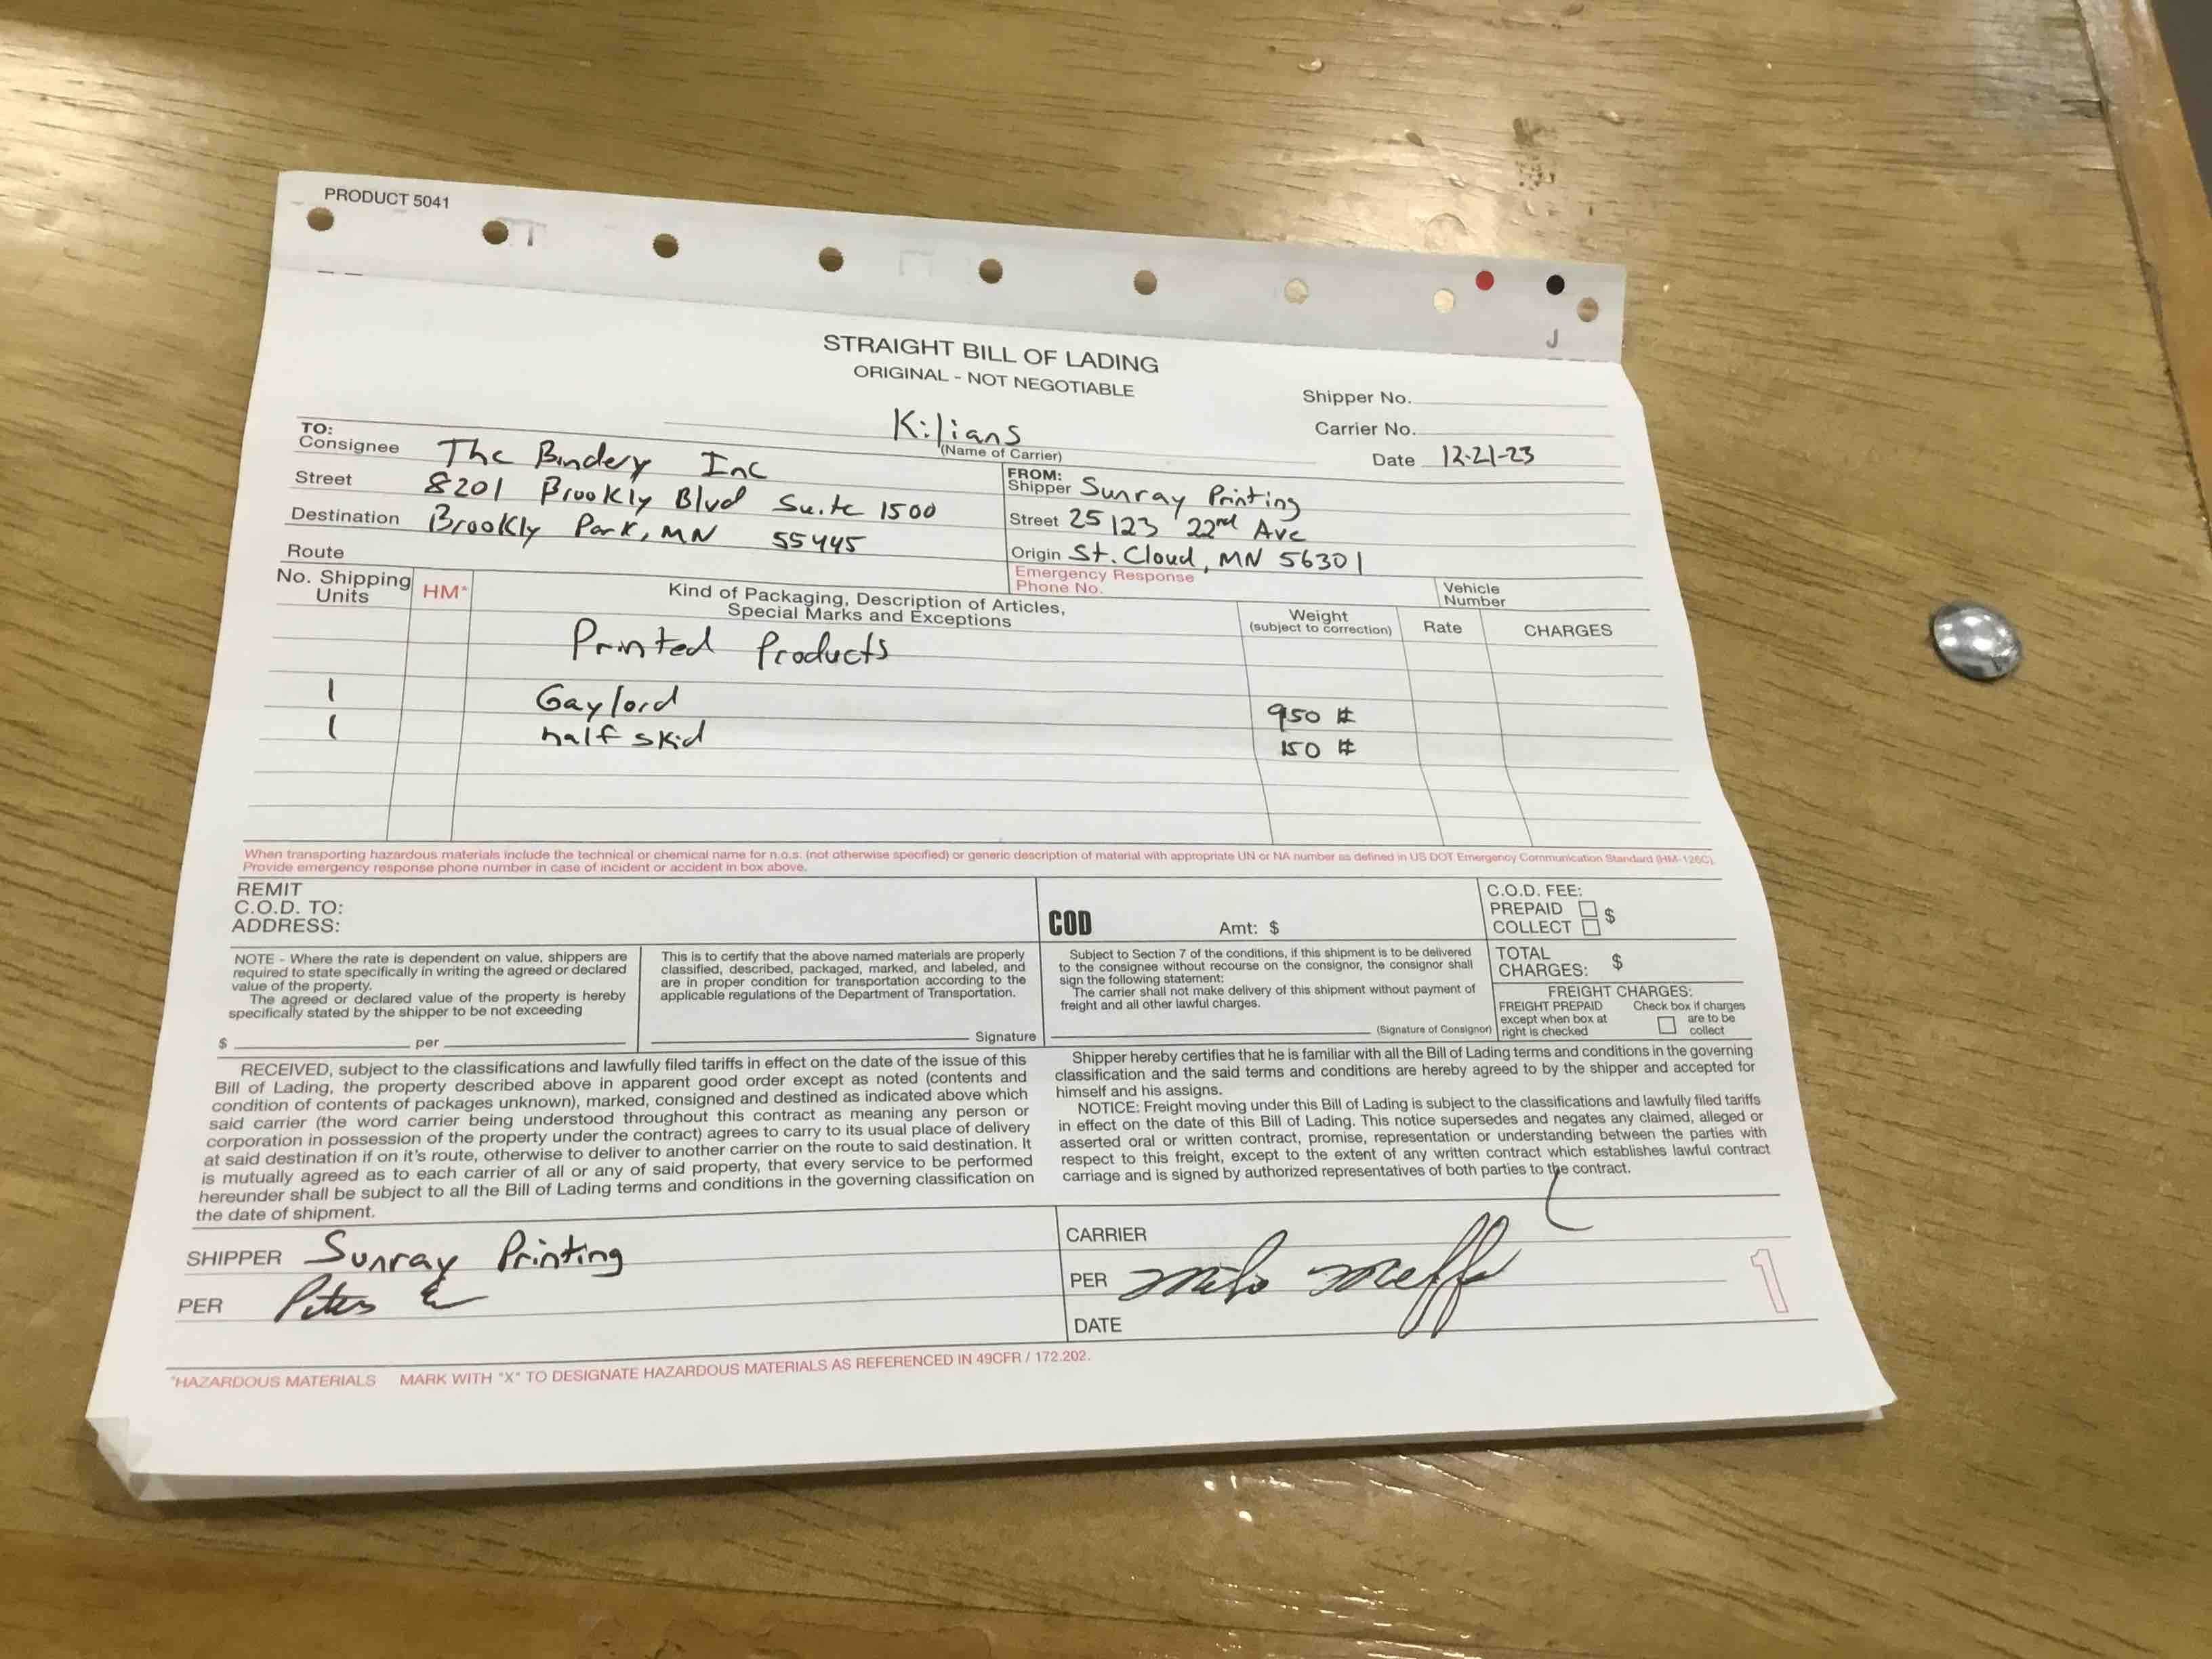 PRODUCT 5041
J
STRAIGHT BILL OF LADING
ORIGINAL - NOT NEGOTIABLE
Shipper No.
Kilians
(Name of Carrier)
Carrier No.
Date 12-21-23
TO:
Consignee The Bindery Inc
Street 8201 Brookly Blvd Suite 1500
Destination Brookly Park, MN 55445
Route
FROM:
Shipper Sunray Printing
Street 25123 22nd Ave
Origin St. Cloud, MN 56301
Emergency Response
Phone No.
Vehicle
Number
No. Shipping
Units
HM*
Kind of Packaging, Description of Articles,
Special Marks and Exceptions
Weight
(subject to correction)
Rate
CHARGES
Printed Products
1 Gaylord 950 #
1 half skid 150 #
When transporting hazardous materials include the technical or chemical name for n.o.s. (not otherwise specified) or generic description of material with appropriate UN or NA number as defined in US DOT Emergency Communication Standard (HM-126C).
Provide emergency response phone number in case of incident or accident in box above.
REMIT
C.O.D. TO:
ADDRESS:
COD Amt: $
C.O.D. FEE:
PREPAID
COLLECT $
NOTE - Where the rate is dependent on value, shippers are
required to state specifically in writing the agreed or declared
value of the property.
The agreed or declared value of the property is hereby
specifically stated by the shipper to be not exceeding
$ per
This is to certify that the above named materials are properly
classified, described, packaged, marked, and labeled, and
are in proper condition for transportation according to the
applicable regulations of the Department of Transportation.
Signature
Subject to Section 7 of the conditions, if this shipment is to be delivered
to the consignee without recourse on the consignor, the consignor shall
sign the following statement:
The carrier shall not make delivery of this shipment without payment of
freight and all other lawful charges.
(Signature of Consignor)
TOTAL
CHARGES: $
FREIGHT CHARGES:
FREIGHT PREPAID
except when box at
right is checked
Check box if charges
are to be
collect
RECEIVED, subject to the classifications and lawfully filed tariffs in effect on the date of the issue of this
Bill of Lading, the property described above in apparent good order except as noted (contents and
condition of contents of packages unknown), marked, consigned and destined as indicated above which
said carrier (the word carrier being understood throughout this contract as meaning any person or
corporation in possession of the property under the contract) agrees to carry to its usual place of delivery
at said destination if on it's route, otherwise to deliver to another carrier on the route to said destination. It
is mutually agreed as to each carrier of all or any of said property, that every service to be performed
hereunder shall be subject to all the Bill of Lading terms and conditions in the governing classification on
the date of shipment.
Shipper hereby certifies that he is familiar with all the Bill of Lading terms and conditions in the governing
classification and the said terms and conditions are hereby agreed to by the shipper and accepted for
himself and his assigns.
NOTICE: Freight moving under this Bill of Lading is subject to the classifications and lawfully filed tariffs
in effect on the date of this Bill of Lading. This notice supersedes and negates any claimed, alleged or
asserted oral or written contract, promise, representation or understanding between the parties with
respect to this freight, except to the extent of any written contract which establishes lawful contract
carriage and is signed by authorized representatives of both parties to the contract.
SHIPPER Sunray Printing
PER
CARRIER
PER
DATE
1
*HAZARDOUS MATERIALS MARK WITH "X" TO DESIGNATE HAZARDOUS MATERIALS AS REFERENCED IN 49CFR / 172.202.